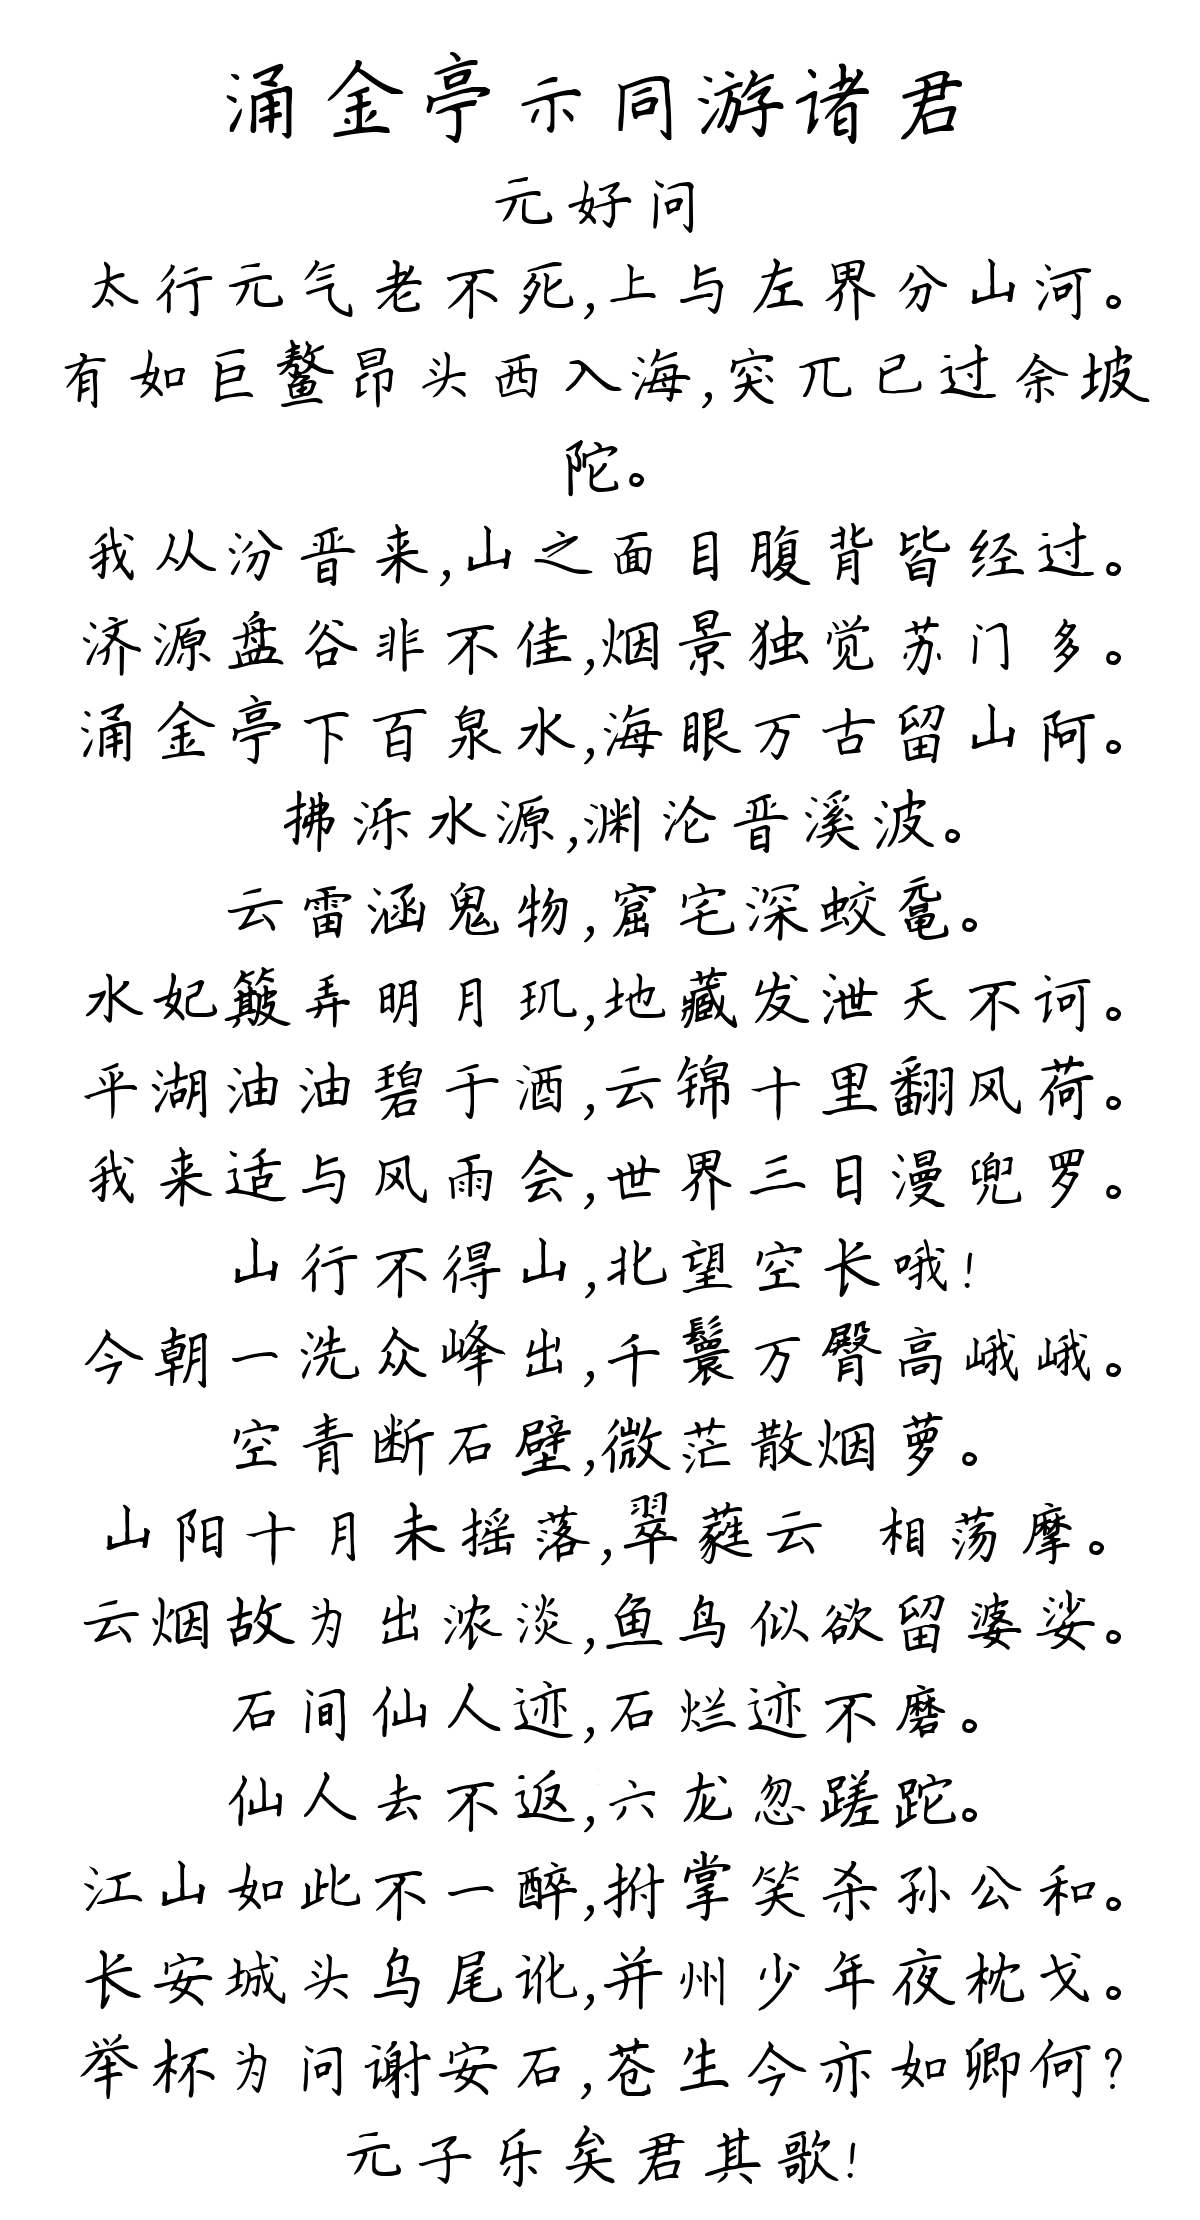 涌金亭示同游诸君
元好问
太行元气老不死,上与左界分山河。
有如巨鳌昂头西入海,突兀已过余坡
陀。
我从汾晋来,山之面目腹背皆经过。
济源盘谷非不佳,烟景独觉苏门多。
涌金亭下百泉水,海眼万古留山阿。
拂泺水源,渊沦晋溪波。
云雷涵鬼物,窟宅深蛟鼋。
水妃簸弄明月玑,地藏发泄天不诃。
平湖油油碧于酒,云锦十里翻风荷。
我来适与风雨会,世界三日漫兜罗。
山行不得山,北望空长哦!
今朝一洗众峰出,千鬟万臀高峨峨。
空青断石壁,微茫散烟萝。
山阳十月未摇落,翠蕤云 相荡摩。
云烟故为出浓淡,鱼鸟似欲留婆娑。
石间仙人迹,石烂迹不磨。
仙人去不返,六龙忽蹉跎。
江山如此不一醉,拊掌笑杀孙公和。
长安城头乌尾讹,并州少年夜枕戈。
举杯为问谢安石,苍生今亦如卿何?
元子乐矣君其歌!